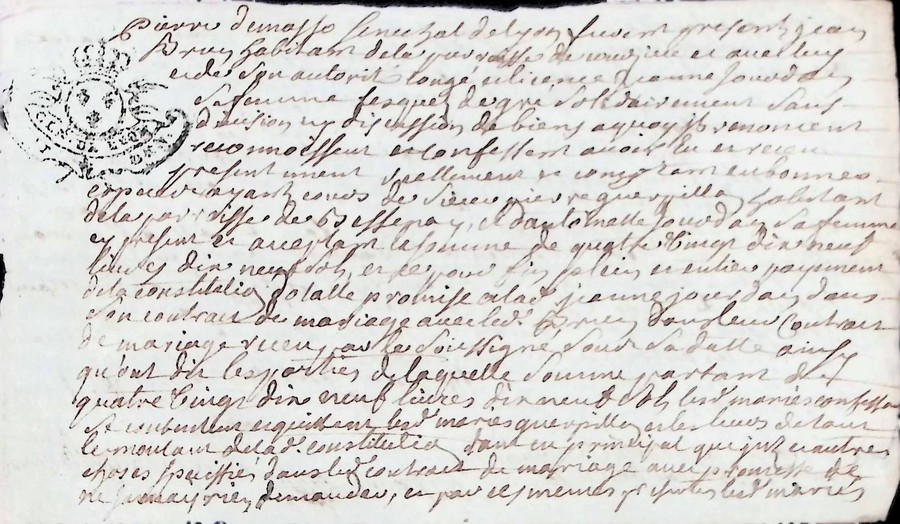 Pierre Demasso senechal de Lyon furent present Jean
Brun habitant de la parroisse de et avec luy
et de son autorité conge et licence Jeanne Jourdain
sa femme lesquels de gré solidairement sans
division ny discussion de biens a quoy ils renoncent
reconnoissent et confessent avoir eu et receu
presentement reellement et comptant en bonnes
especes ayant cours de sieur pierre querpillon habitant
de la parroisse de Bessenay, et d'anthoinette Jourdain sa femme
icy present et acceptant la somme de quatre vingt dix neuf
livres dix neuf sols, et ce pour fin plein et entier payement
de la constitution dotalle promise a lad. jeanne jourdain dans
son contrat de mariage avec led. Brun dans leur contrait
de mariage receu par le soussigné sous sa datte ainsy
qu'ont dit les parties de laquelle somme partant de
quatre vingt dix neuf livres dix neuf sols lesd. mariés confessent
se contenter et quittent lesd. mariés querpillon et les leurs de tout
le montant de lad. constitution tant en principal qu'intz et autres
choses speciffiés dans led. contrait de mariage avec promesse de
ne jamais rien demander, et par ces memes presentes lesd. mariés